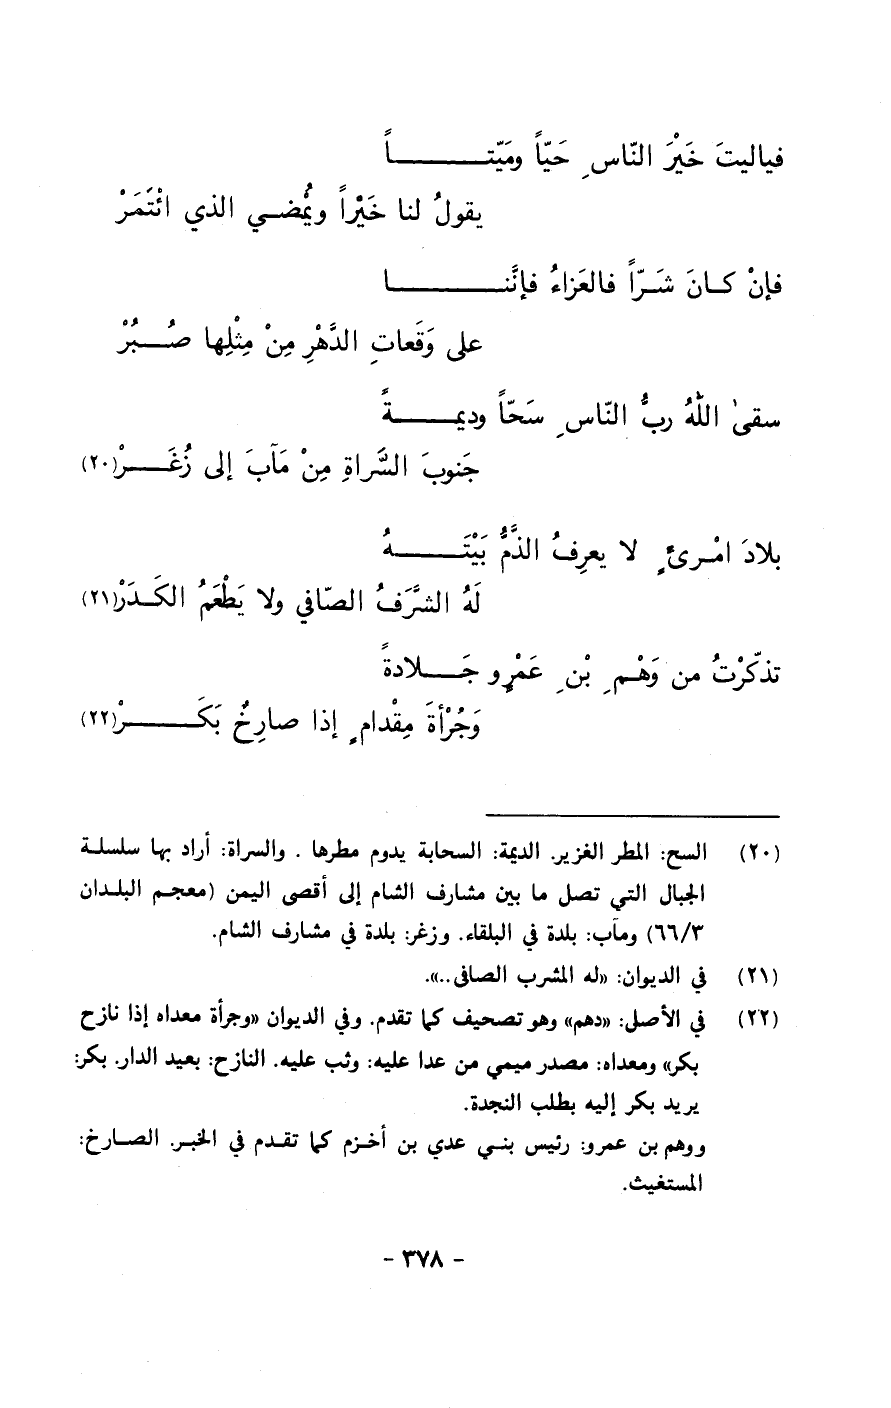 فياليتَ خَيْرَ النّاسِ حَيّاً ومَيّتــــــاً
يقولُ لنا خَيْراً ويُمْضـي الذي ائْتَمَرْ
فإنْ كـانَ شَـرّاً فالعَزاءُ فإنَّنــــــا
على وَقَعاتِ الدَّهْرِ مِنْ مِثْلِها صُـــبُرْ
سقىٰ اللّهُ ربُّ النّاسِ سَحّاً وديمــــةً
جَنوبَ السَّراةِ مِنْ مَآبَ إلى زُغَـــرْ(٢٠)
بلادَ امْـرىءٍ لا يعرِفُ الذَّمُّ بَيْتَــــهُ
لَهُ الشَّرَفُ الصّافي ولا يَطْعَمُ الكَـدَرْ(٢١)
تذكّرْتُ من وَهْـمِ بْنِ عَمْرٍو جَـــلادةً
وَجُرْأةَ مِقْدامٍ إذا صارِخٌ بَكَــــرْ(٢٢)
(٢٠) السح: المطر الغزير. الديمة: السحابة يدوم مطرها . والسراة: أراد بها سلسلـة
الجبال التي تصل ما بين مشارف الشام إلى أقصى اليمن (معجـم البلـدان
٦٦/٣) ومآب: بلدة في البلقاء. وزغر: بلدة في مشارف الشام.
(٢١) في الديوان: «له المشرب الصافى..».
(٢٢) في الأصل: «دهم» وهو تصحيف كما تقدم. وفي الديوان «وجرأة معداه إذا نازح
بكر» ومعداه: مصدر ميمي من عدا عليه: وثب عليه. النازح: بعيد الدار. بكر:
يريد بكر إليه بطلب النجدة.
ووهم بن عمرو: رئيس بنـي عدي بن أخـزم كما تقـدم في الخبر. الصـارخ:
المستغيث.
- ٣٧٨ -